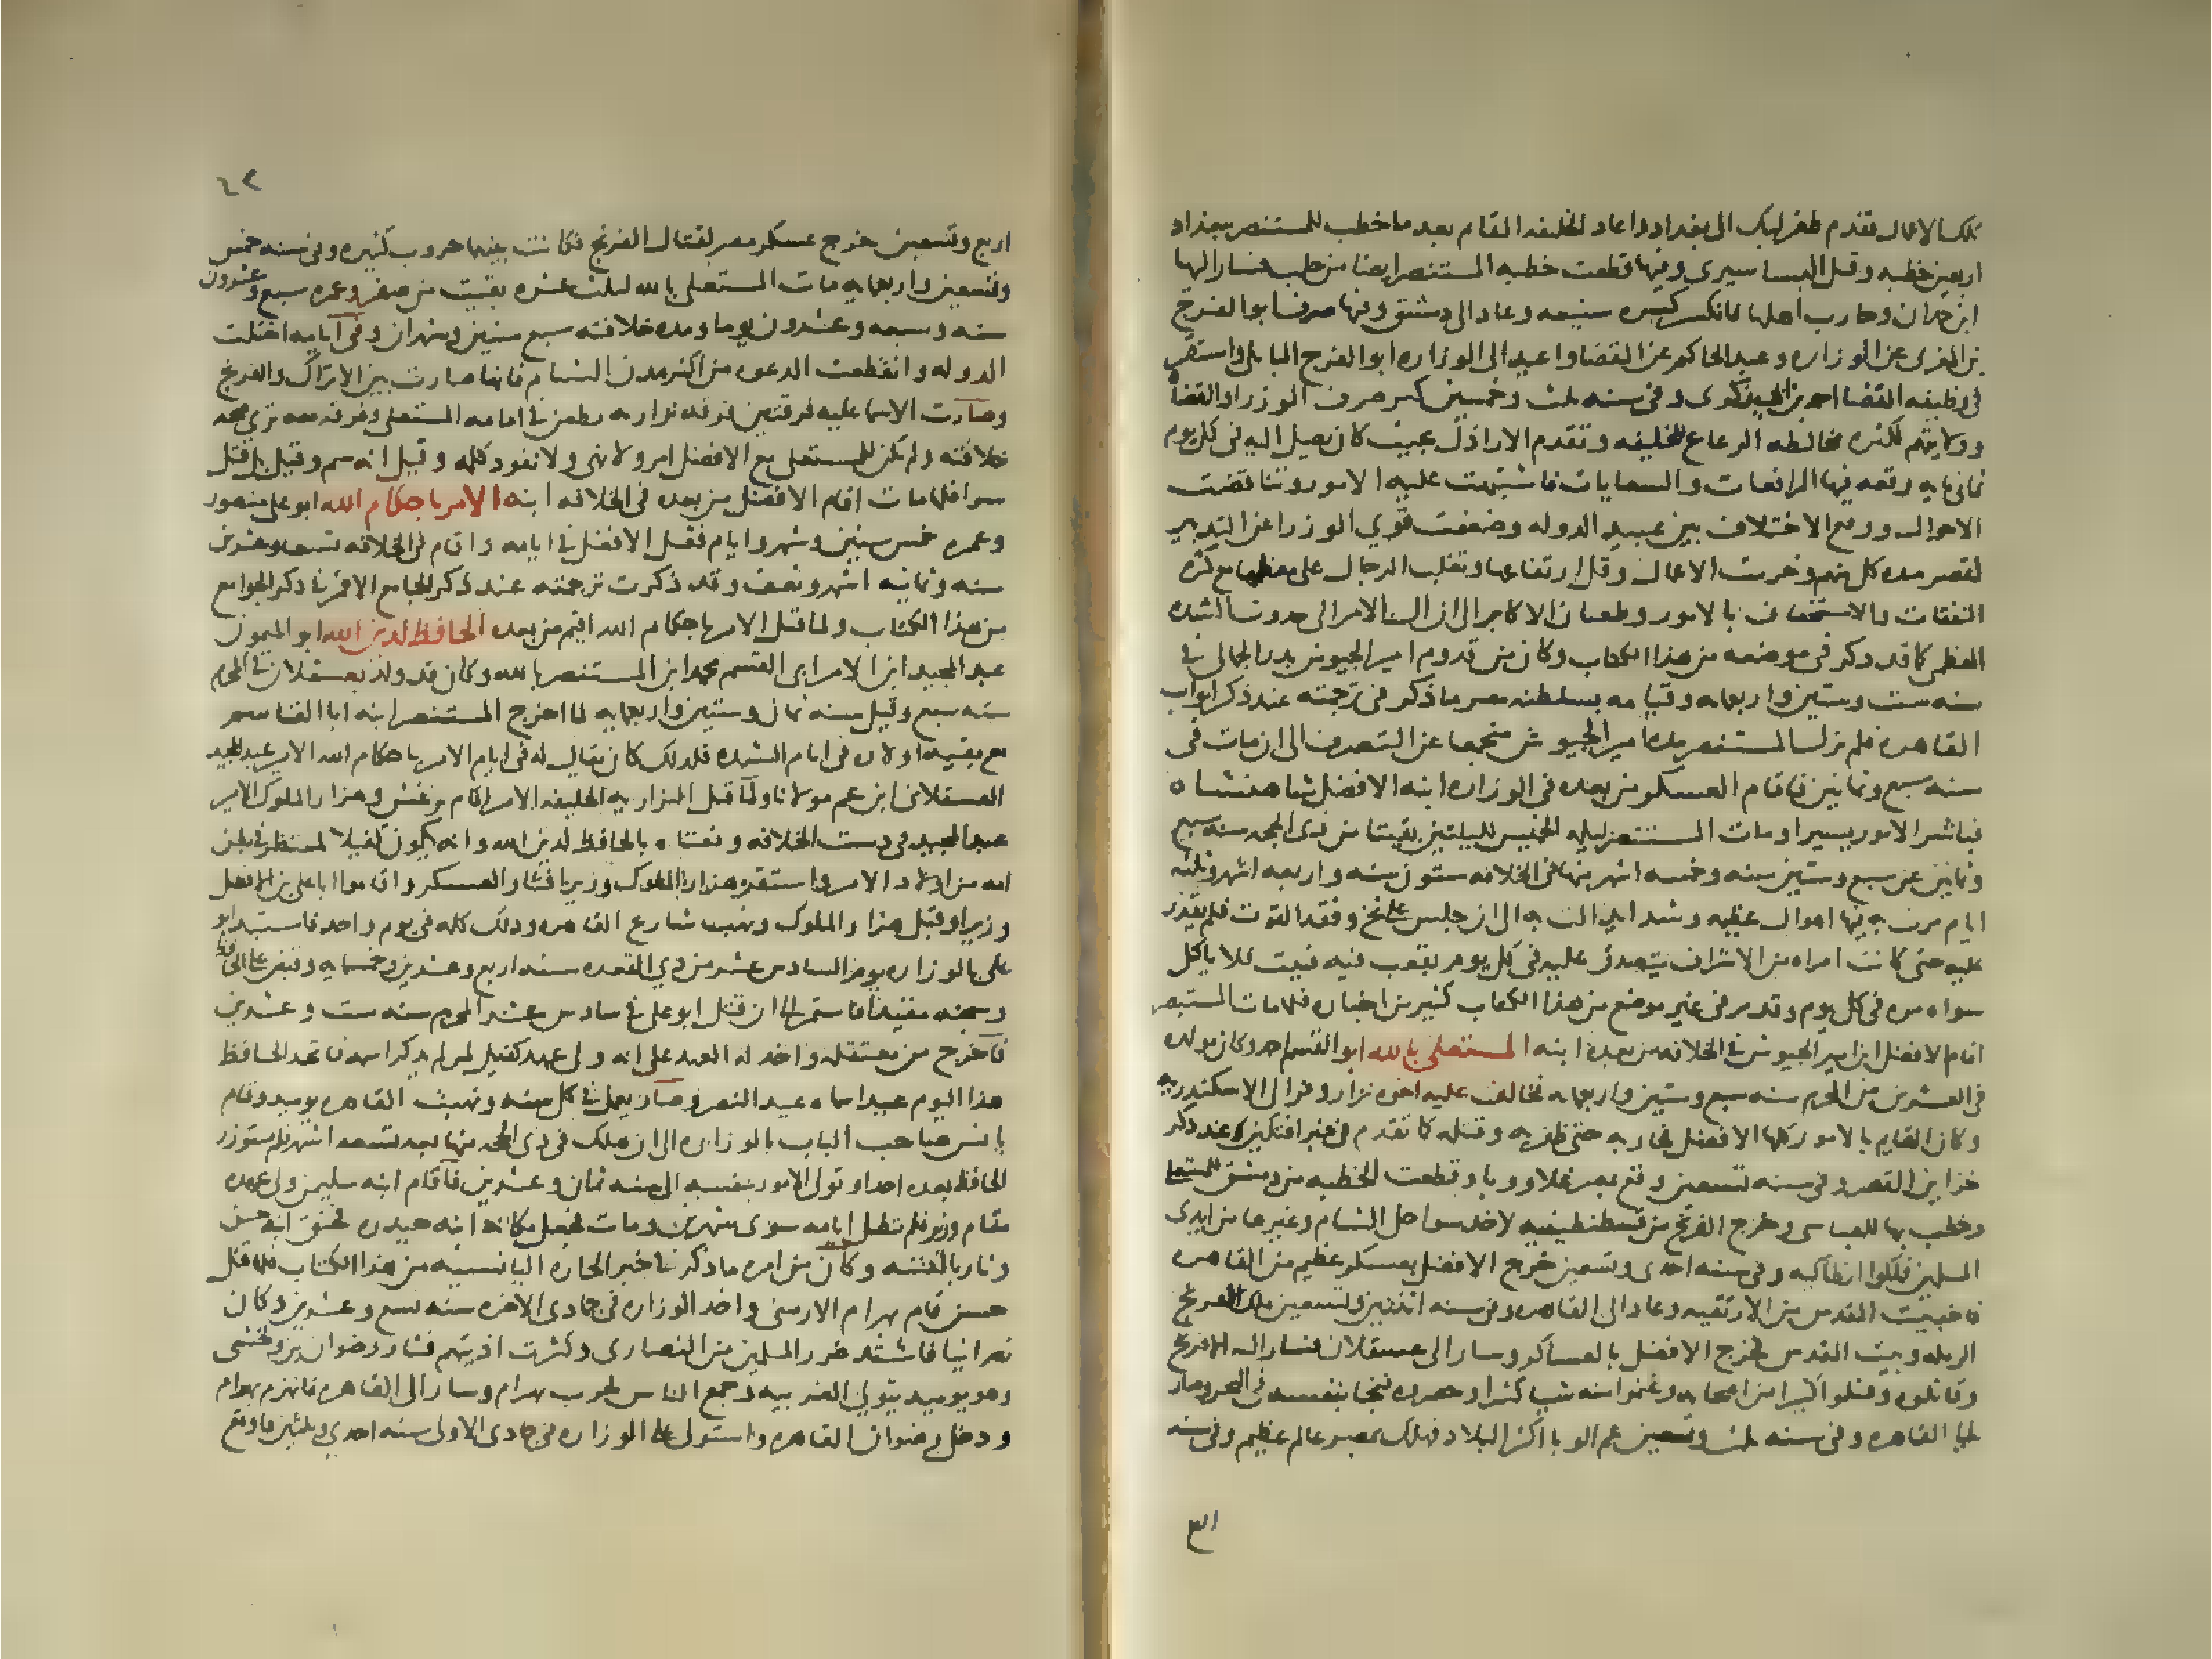 تلك الاعمال فقدم طغرلبك الى بغداد واعاد الخليفه القام بعد ما خطب للمستنصر ببغداد
اربعين خطبه وقتل البساسيرى وفيها قطعت خطبه المستنصر ايضا من حلب فسار اليها
ابن حمدان وحارب اهلها فانكسر كسره شنيعه وعاد الى دمشق وفيها صرف ابو الفرج
بن المغربى عن الوزاره وعبد الحاكم عن القضا واعيد الى الوزاره ابو الفرج البابلى واستقر
فى وظيفه القضا احمد بن زكرى وفى سنه ثلث وخمسين كثر صرف الوزرا والقضاه
وولايتهم لكثره مخالطه الرعاع للخليفه وتقدم الاراذل بحيث كان يصل اليه فى كل يوم
ثمانمايه رقعه فيها المرافعات والسعايات فاشتبهت عليه الامور وتناقضت
الاحوال ووقع الاختلاف بين عبيد الدوله وضعفت قوي الوزرا عن التدبير
لقصر مده كل منهم وخربت الاعمال وقل ارتفاعها وتغلب الرجال على معظمها مع كثره
النفقات والاستخفاف بالامور وطغيان الاكابر الى ان ال الامر الى حدوث الشده
العظمى كما قد ذكر فى موضعه من هذا الكتاب وكان من قدوم امير الجيوش بدر الجمالى فى
سنه ست وستين واربعمايه وقيامه بسلطنه مصر ما ذكر فى ترجمته عند ذكر ابواب
القاهره فلم يزل المستنصر مده امير الجيوش ملجما عن التصرف الى ان مات فى
سنه سبع وثمانين فاقام العسكر من بعده فى الوزاره ابنه الافضل شاهنشاه
فباشر الامور يسيرا ومات المستنصر ليله الخميس لليلتين بقيتا من ذى الحجه سنه سبع
وثمانين عن سبع وستين سنه وخمسه اشهر منها فى الخلافه ستون سنه واربعه اشهر وثلثه
ايام مرت به فيها اهوال عظيمه وشدايد الت به الى ان جلس على نخ وفقد القوت فلم يقدر
عليه حتى كانت امراه من الاشراف تتصدق عليه فى كل يوم بقعب فيه فتيت فلا ياكل
سواه مره فى كل يوم وقد مر فى غير موضع من هذا الكتاب كثير من اخباره فلما مات المستنصر
اقام الافضل ابن امير الجيوش فى الخلافه من بعده ابنه المستعلى بالله ابو القسم احمد وكان مولده
فى العشرين من المحرم سنه سبع وستين واربعمايه فخالف عليه اخوه نزار وفر الى الاسكندريه
وكان القايم بالامور كلها الافضل فحاربه حتى ظفر به وقتله كما تقدم فى خبر افتكين عند ذكر
خزاين القصر وفى سنه تسعين وقع بمصر غلا ووبا وقطعت الخطبه من دمشق للمستعلى
وخطب بها للعباسى وخرج الفرنج من قسطنطينيه لاخذ سواحل الشام وغيرها من ايدى
المسلمين فملكوا انطاكيه وفى سنه احدى وتسعين خرج الافضل بعسكر عظيم من القاهره
فاخذ بيت المقدس من الارتقيه وعاد الى القاهره وفى سنه اثنتين وتسعين ملك الفرنج
الرمله وبيت القدس فخرج الافضل بالعساكر وسار الى عسقلان فسار اليه الافرنج
وقاتلوه وقتلوا كثيرا من اصحابه وغنموا منه شيا كثيرا وحصروه فنجا بنفسه فى البحر وصار
الى القاهره وفى سنه ثلث وتسعين عم الوبا اكثر البلاد فهلك بمصر عالم عظيم وفى سنه
٣١
٤٢
اربع وتسعين خرج عسكر مصر لقتال الفرنج فكانت بينهما حروب كثيره وفى سنه خمس
وتسعين واربعمايه مات المستعلى بالله لثلث عشره بقيت من صفر وعمره سبع وعشرون
سنه وسبعه وعشرون يوما ومده خلافته سبع سنين وشهران وفى ايامه اختلت
الدوله وانقطعت الدعوه من اكثر مدن الشام فانها صارت بين الاتراك والفرنج
وصارت الاسماعليه فرقتين فرقه نزاريه تطعن فى امامه المستعلى وفرقه ترى صحه
خلافته ولم يكن للمستعلى مع الافضل امر ولا نهى ولا نفوذ كلمه وقيل انه سم وقيل بل قتل
سرا فلما مات اقام الافضل من بعده فى الخلافه ابنه الامر باحكام الله ابو على منصور
وعمره خمس سنين وشهر وايام فقتل الافضل فى ايامه واقام فى الخلافه تسعا وعشرين
سنه وثمانيه اشهر ونصف وقد ذكرت ترجمته عند ذكر الجامع الاقمر فى ذكر الجوامع
من هذا الكتاب ولما قتل الامر باحكام الله اقيم من بعده الحافظ لدين الله ابو الميمون
عبد المجيد ابن الامير ابى القسم محمد ابن المستنصر بالله وكان قد ولد بعسقلان فى المحرم
سنه سبع وقيل سنه ثمان وستين واربعمايه لما اخرج المستنصر ابنه ابا القاسم
مع بقيه اولاده فى ايام الشده فلذلك كان يقال له فى ايام الامر باحكام الله الامير عبد المجيد
العسقلانى ابن عم مولانا ولما قتل النزاريه الخليفه الامر اقام برغش وهزار الملوك الامير
عبد المجيد فى دست الخلافه ونعتاه بالحافظ لدين الله وانه يكون كفيلا لمنتظر فى بطن
امه من اولاد الامر واستقر هزار الملوك وزيرا فثار العسكر واقاموا ابا على بن الافضل
وزيرا وقتل هزار الملوك ونهب شارع القاهره وذلك كله فى يوم واحد فاستبد ابو
على بالوزاره يوم السادس عشر من ذي القعده سنه اربع وعشرين وخمسمايه وقبض على الحافظ
وسجنه مقيدا فاستمر الى ان قتل ابو على فى سادس عشر المحرم سنه ست وعشرين
فاخرج من معتقله واخذ له العهد على انه ولى عهد كفيل لمن لم يذكر اسمه فاتخذ الحافظ
هذا اليوم عيدا سماه عيد النصر وصار يعمل فى كل سنه ونهبت القاهره يوميد وقام
يانس صاحب الباب بالوزاره الى ان هلك فى ذى الحجه منها بعد تسعه اشهر فلم يستوزر
الحافظ بعده احدا وتولى الامور بنفسه الى سنه ثمان وعشرين فاقام ابنه سليمن ولى عهده
مقام وزير فلم تطل ايامه سوى شهرين ومات فجعل مكانه ابنه حيدره فحنق ابنه حسن
وثار بالفتنه وكان من امره ما ذكر فى خبر الحاره اليانسيه من هذا الكتاب فلما قتل
حسن قام بهرام الارمنى واخذ الوزاره فى جمادى الاخره سنه تسع وعشرين وكان
نصرانيا فاشتد ضرر المسلمين من النصارى وكثرت اذيتهم فثار رضوان بن ولخشى
وهو يوميد يتولى الغربيه وجمع الناس لحرب بهرام وسار الى القاهره فانهزم بهرام
ودخل رضوان القاهره واستولى على الوزاره فى جمادى الاولى سنه احدي وثلثين فاوقع